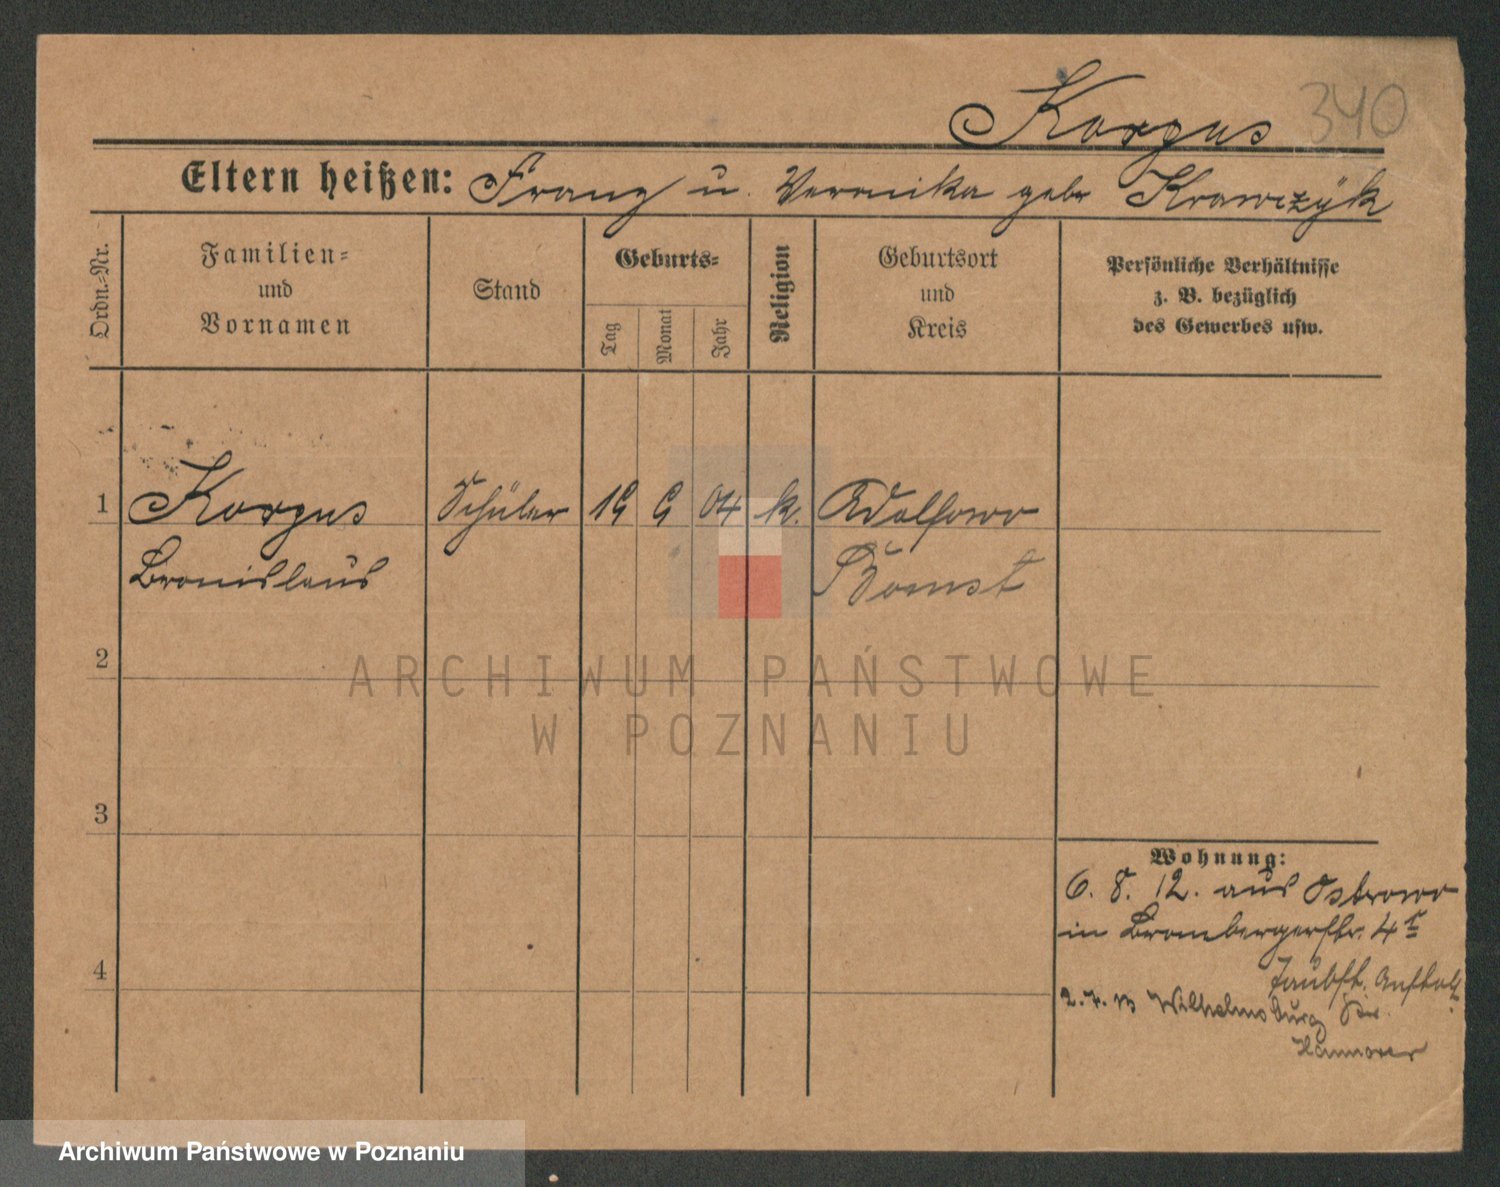 Korzus 340
Eltern heißen: Franz u. Veronika geb. Krawczÿk
Ordn.-Nr.
Familien-
und
Vornamen
Stand
Geburts-
Tag
Monat
Jahr
Religion
Geburtsort
und
Kreis
Persönliche Verhältnisse
z. B. bezüglich
des Gewerbes usw.
1 Korzus Schüler 19 9 04 k. Adolfowo
Bronislaus Bomst
2
ARCHIWUM PAŃSTWOWE
W POZNANIU
3
Wohnung:
6. 8. 12. aus Ostrowo
in Brombergerstr. 4
Taubst. Anstalt
4
2. 7. 13 Wilhelmsburg
Hannover
Archiwum Państwowe w Poznaniu